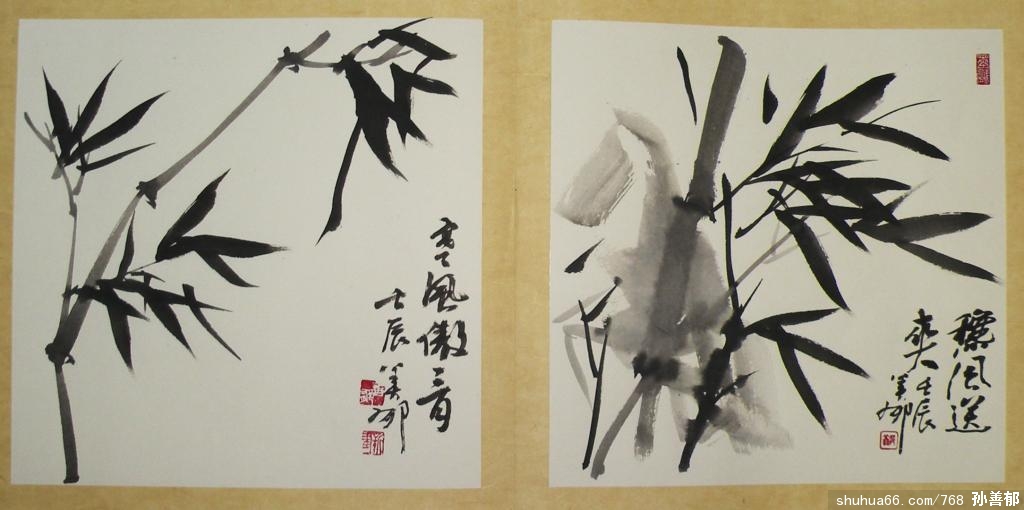 高風傲骨
壬辰
善郁
风送
爽 壬辰
善郁
shuhua66.com/768 孙善郁